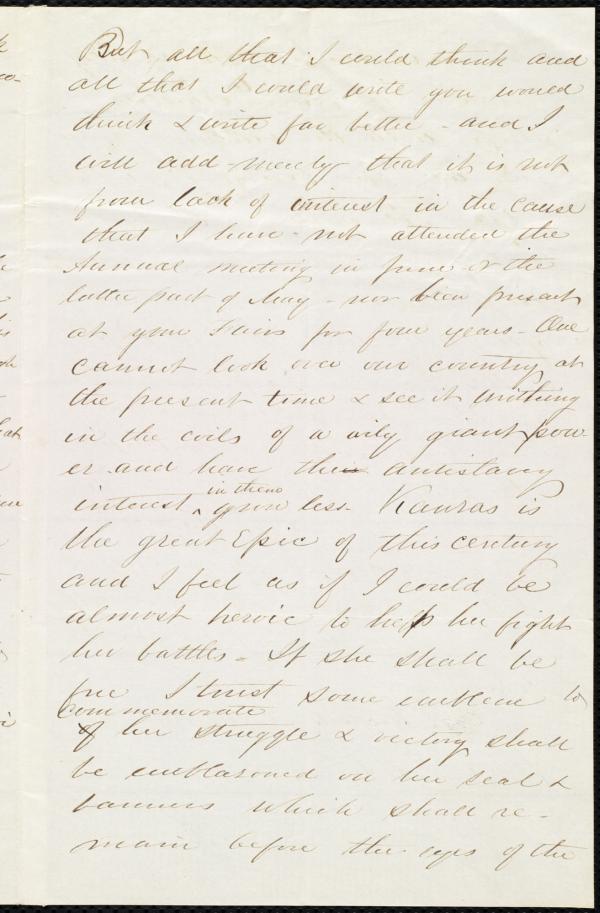 But all that I could think and
all that I could write you would
think & write far better - and I
will add merely that it is not
from lack of interest in the cause
that I have not attended the
Annual meeting in June or the
latter part of May - nor been present
at your Fairs for four years - One
cannot look over our country at
the present time & see it writhing
in the coils of a wily giant pow-
er and have the antislavery
in them
interest grow less. Kansas is
the great Epic of this century
and I feel as if I could be
almost heroic to help her fight
her battles - If she shall be
free I trust some emblem to
commemorate
of her struggle & victory shall
be emblasoned on her seal &
banners which shall re-
main before the eyes of the